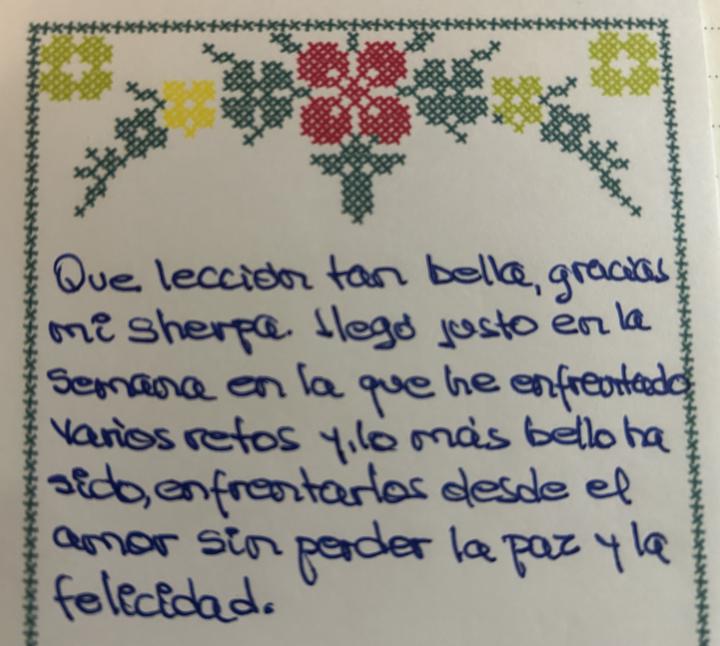 Que lección tan bella, gracias
mi sherpa. Llegó justo en la
semana en la que he enfrentado
varios retos y, lo más bello ha
sido, enfrentarlos desde el
amor sin perder la paz y la
felicidad.